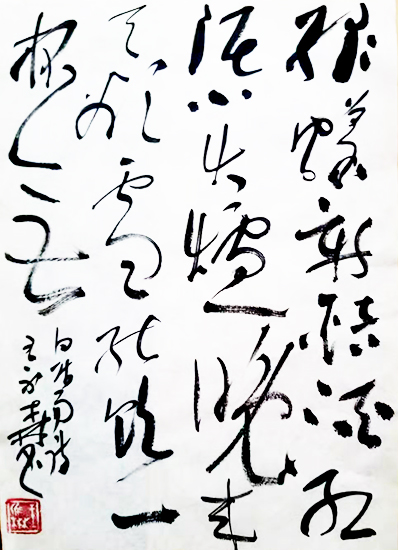 绿蟻新醅酒红
泥小火爐晚来
天欲雪能饮一
杯无
白居易诗